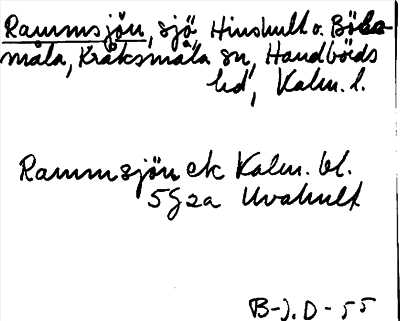 Rammsjön, sjö, Hinshult o. Böla-
måla, Kråksmåla sn, Handbörds
hd, Kalm. l.
Rammsjön ek Kalm. bl.
5G2a Uvahult
B-J. D-55